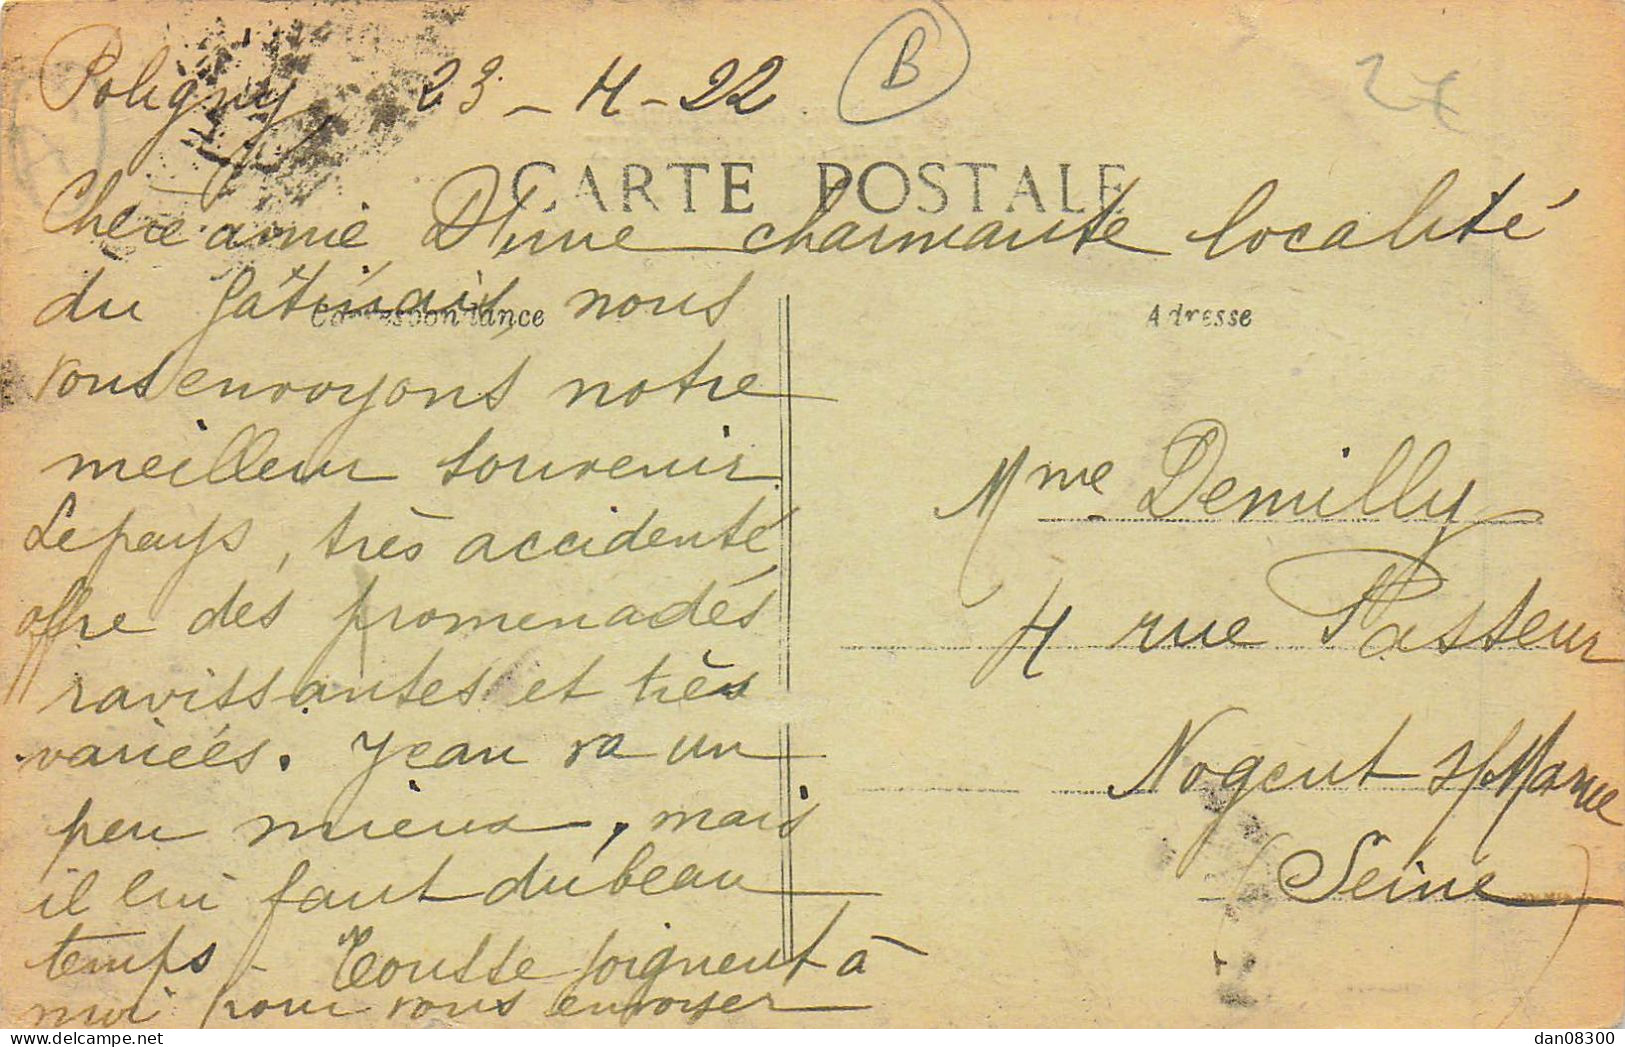 Poligny 23-4-22 B
27
CARTE POSTALE
Chère amie D'une charmante localité
du gâtinais, nous
Correspondance
vous envoyons notre
meilleur souvenir.
Le pays, très accidenté,
offre des promenades
ravissantes et très
variées. Jean va un
peu mieux, mais
il lui faut du beau
temps - Tousse joignent à
moi pour vous envoyer
Adresse
Mme Demilly
4 rue Pasteur
Nogent s/Marne
(Seine)
delcampe.net
dan08300